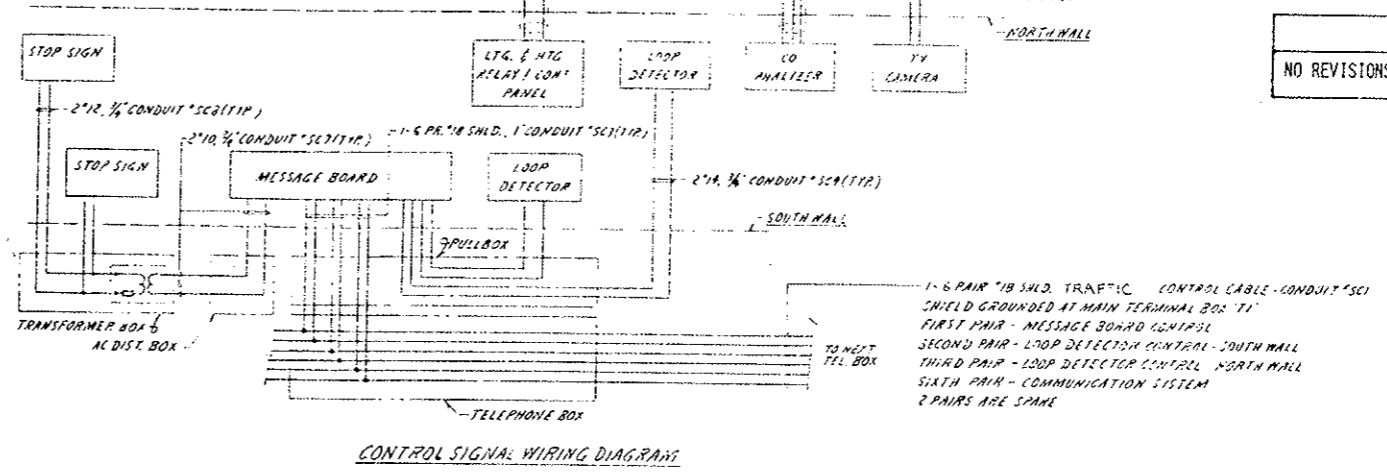 NORTH WALL
NO REVISIONS
STOP SIGN
LTG. & HTG
RELAY / CONT
PANEL
LOOP
DETECTOR
CO
ANALIZER
TV
CAMERA
2#12, 3/4" CONDUIT "SC8(TYP.)
2#10, 3/4" CONDUIT "SC7(TYP.)
1-6 PR.#18 SHLD., 1" CONDUIT "SC1(TYP.)
STOP SIGN
MESSAGE BOARD
LOOP
DETECTOR
2#14, 3/4" CONDUIT "SC9(TYP.)
SOUTH WALL
PULLBOX
TRANSFORMER BOX &
AC DIST. BOX
TO NEXT
TEL. BOX
1-6 PAIR #18 SHLD. TRAFFIC CONTROL CABLE-CONDUIT "SC1
SHIELD GROUNDED AT MAIN TERMINAL BOX "T1"
FIRST PAIR - MESSAGE BOARD CONTROL
SECOND PAIR - LOOP DETECTOR CONTROL - SOUTH WALL
THIRD PAIR - LOOP DETECTOR CONTROL NORTH WALL
SIXTH PAIR - COMMUNICATION SISTEM
2 PAIRS ARE SPARE
TELEPHONE BOX
CONTROL SIGNAL WIRING DIAGRAM